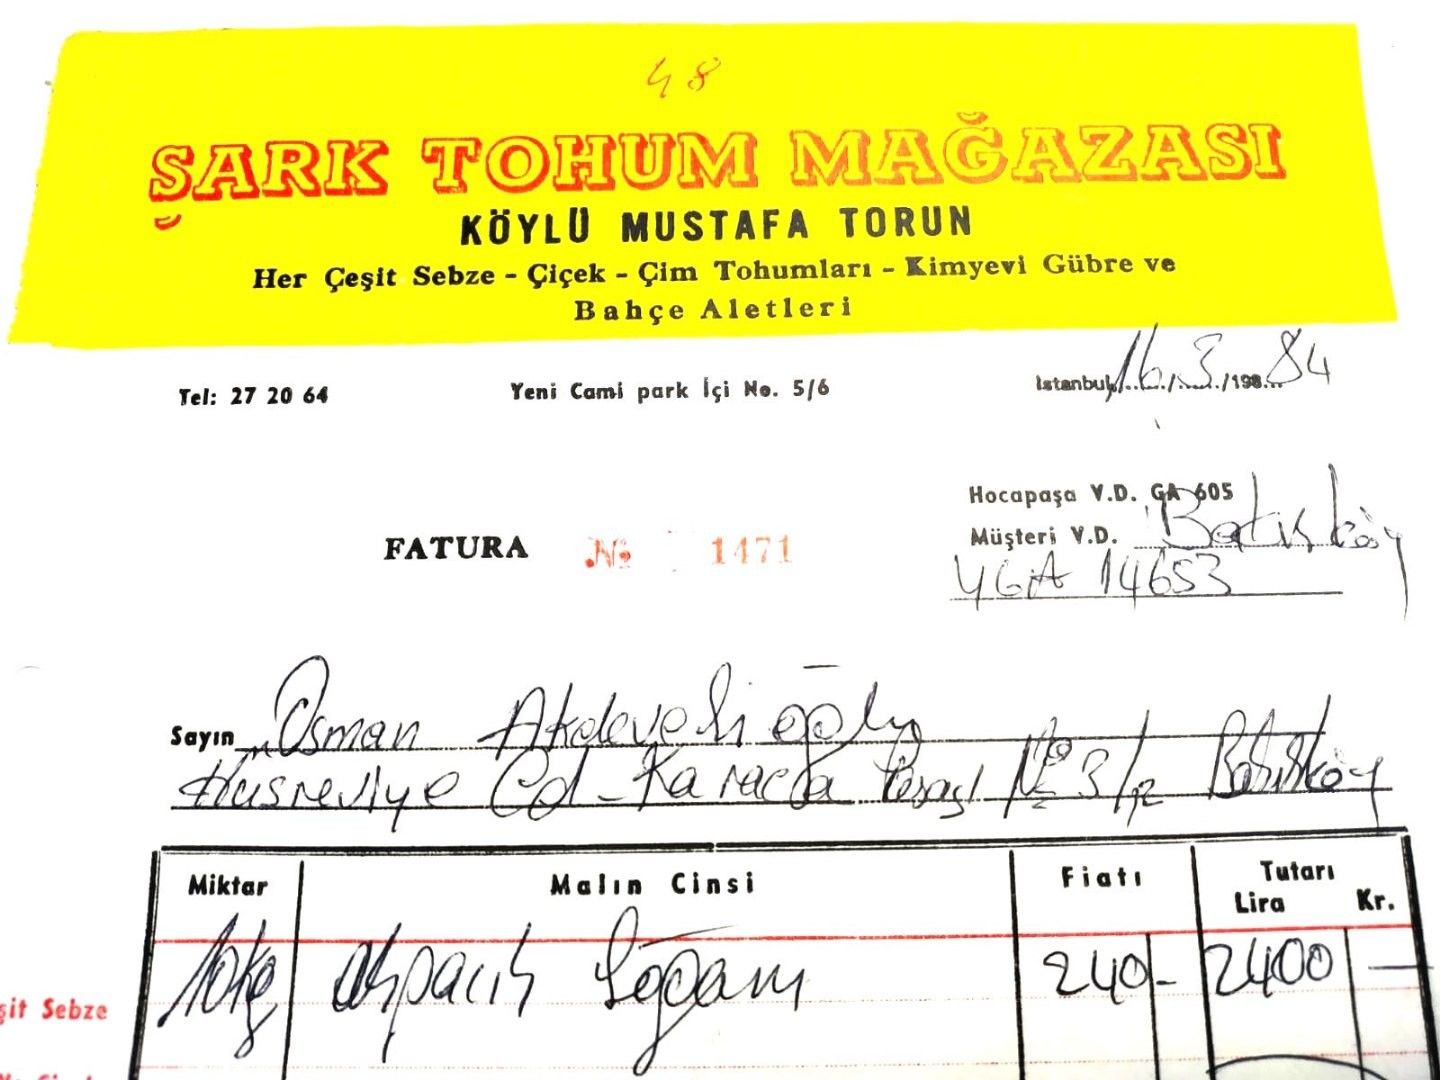 48
ŞARK TOHUM MAĞAZASI
KÖYLÜ MUSTAFA TORUN
Her Çeşit Sebze - Çiçek - Çim Tohumları - Kimyevi Gübre ve
Bahçe Aletleri
Tel: 27 20 64 Yeni Cami park İçi No. 5/6 İstanbul, 16/3/198 84
Hocapaşa V.D. GA 605
FATURA № 1471 Müşteri V.D. Bakırköy
YGA 14653
Sayın Osman Akdevelioğlu
Hüsreviye Cd - Karaca Pasajı № 3/12 Bakırköy
Miktar Malın Cinsi Fiatı Tutarı
Lira Kr.
10kg Arpacık Soğanı 240 - 2400 —
şit Sebze